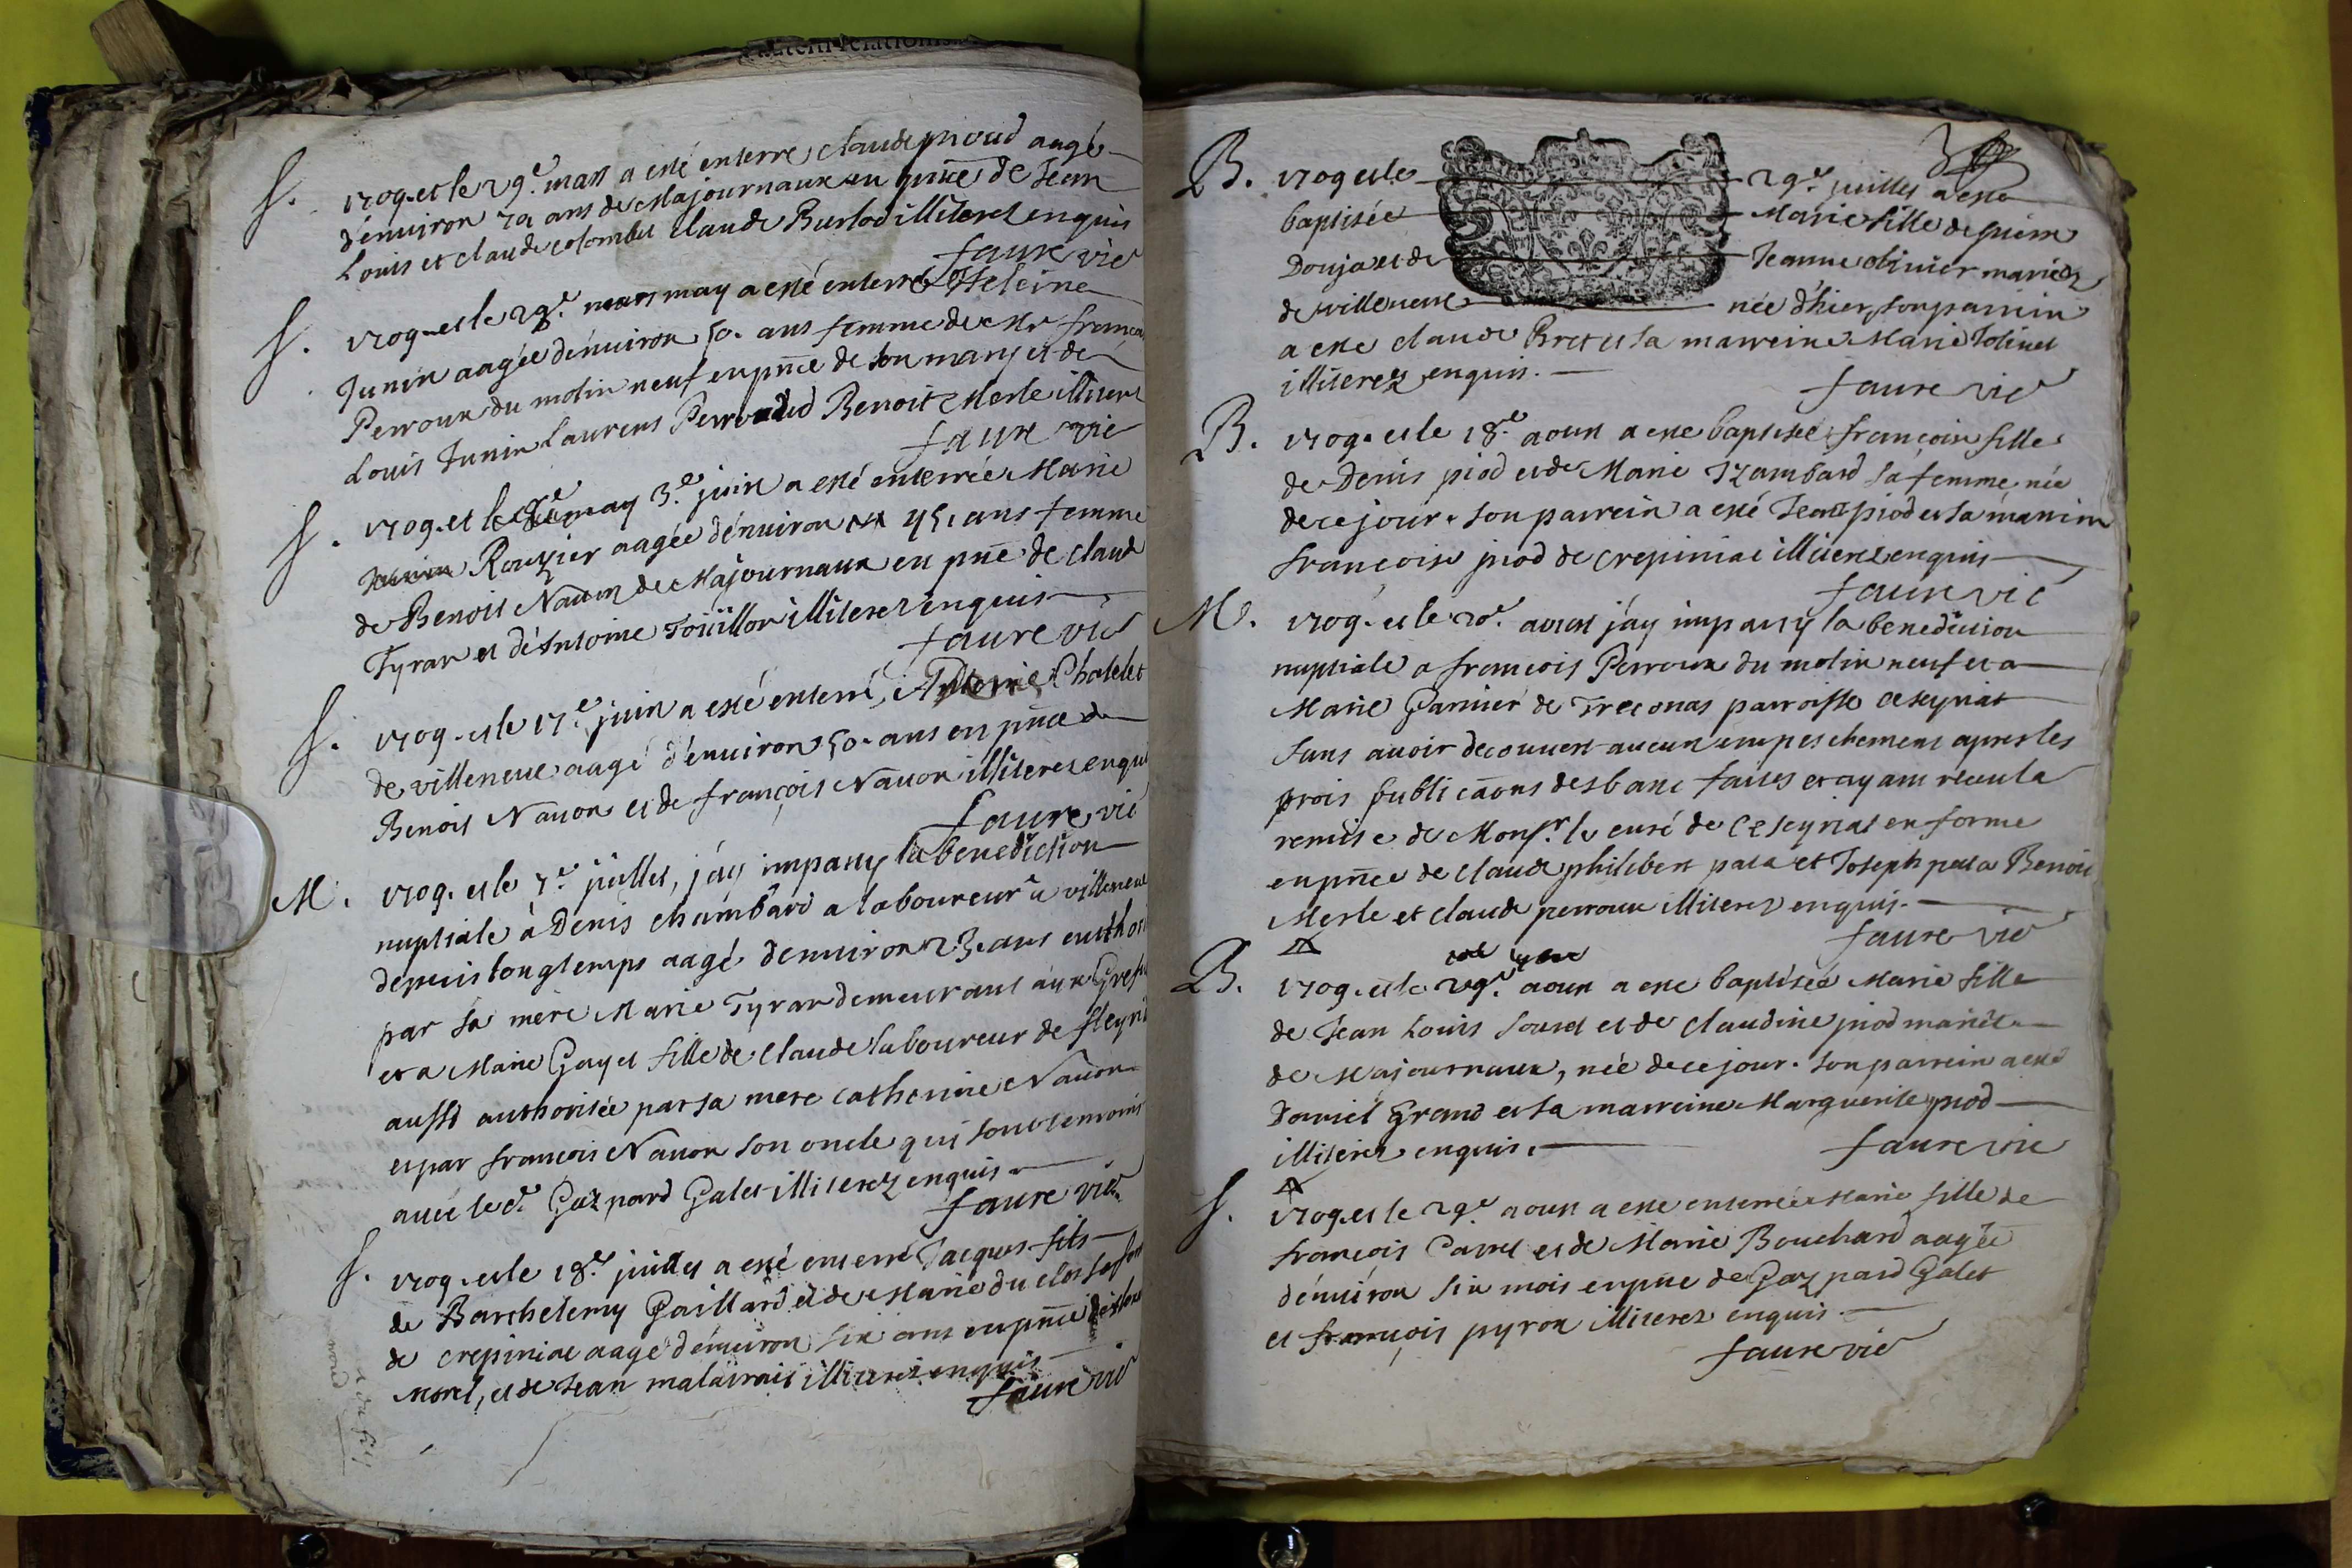 S. 1709. et le 29.e mars a esté enterré claude pioud aagé
d'enuiron ans de Majournaux en pñce de Jean
Louis et claude colombet claude Burlod illiterez enquis
faure vic
S. 1709. et le 28.e may a esté enterré Heleine
Junin aagée d'enuiron 50. ans femme de Mr
Perroux du molin neuf en pñce de son mary et de
Louis Junin Laurens Benoit Merle
faure vic
S. 1709. et le 3.e juin a esté enterrée Marie
Rouzier aagée d'enuiron 45. ans femme
de Benoit Nauon de Majournaux en pñe de claude
Tyran et d'Antoine Toüillon illiterez enquis
faure vic
S. 1709. et le 17.e juin a esté enterré, Antoine Chatelet
de villeneue aagé d'enuiron 50. ans en pñce de
Benoit Nauon et de françois Nauon illiterez enquis
faure vic
M. 1709. et le 7.e juillet, j'ay impary la benediction
nuptiale à Denis chambard a laboureur a villeneue
depuis longtemps aagé d'enuiron 23. ans
par sa mere Marie Tyran demeurant aux
et a Marie Gayet fille de claude laboureur de
aussi authorisée par sa mere catherine Nauon
et par francois Nauon son oncle qui sont temoins
auec le d.t Gazpard Galet illiterez enquis
faure vic
S. 1709. et le 18.e juillet a esté enterré Jacques fils
de Barthelemy Gaillard et de Marie du clos
de crepiniae aagé d'enuiron six ans en pñce
Morel, et de Jean illiterez enquis
faure vic
B. 1709 et le 29.e juillet a esté
baptisée Marie fille de pierre
Doujat et de Jeanne oliuier mariez
de villeneuve née d'hier, son parrin
a esté claude Bret et sa marreine Marie Jolinet
illiterez enquis.
faure vic
B. 1709. et le 18.e aoust a esté baptisée françoise fille
de Denis piod et de Marie Izambard sa femme née
de ce jour. son parrein a esté Jean piod et sa marrine
francoise piod de crepiniae illiterez enquis
faure vic
M. 1709. et le 20.e aoust j'ay impary la benediction
nuptiale a francois Perroux du molin neuf et a
Marie Garnier de Treconas parroisse ceseyriat
sans auoir decouuert aucun empeschement apres les
trois publicãons des banc faites et ayant receu la
remise de Monsr. le curé de Ceseyriat en forme
en pñce de claude philibert pata et Joseph pata Benoit
Merle et claude perroux illiterez enquis.
faure vic
B. 1709. et le 29.e aoust a esté baptisée Marie fille
de Jean Louis Louet et de claudine piod mariez
de Majournaux, née de ce jour. son parrein a esté
Daniel Grand et sa marreine Marguerite piod
illiterez enquis.
faure vic
S. 1709. et le 29.e aoust a esté enterrée Marie fille de
françois Carrel et de Marie Bouchard aagée
d'enuiron six mois en pñe de Gazpard Galet
et françois pyron illiterez enquis.
faure vic